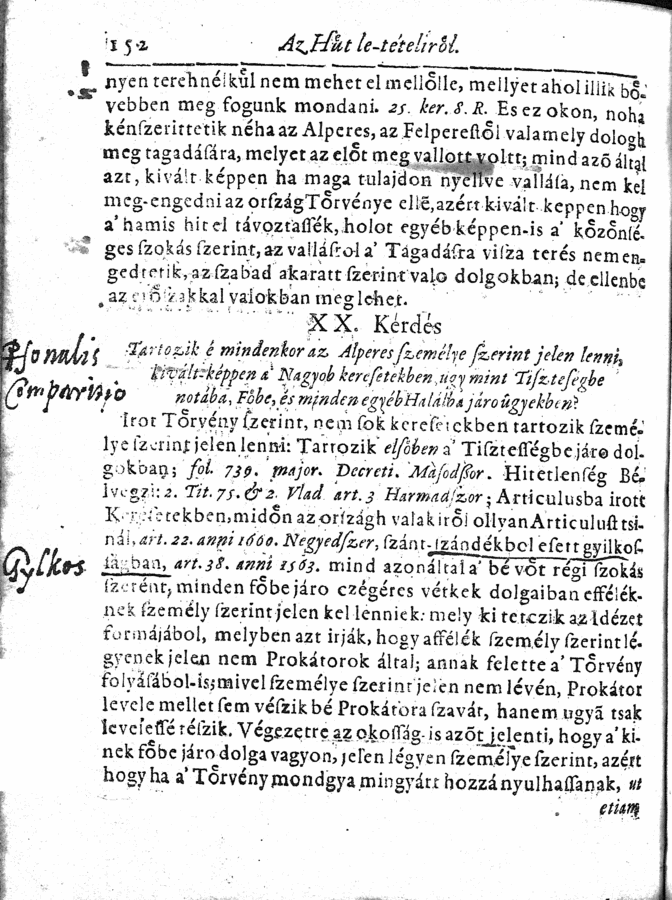 152 Az Hu̇t le-tételiről.
nyen terehnélkűl nem mehet el mellőlle, mellyet ahol illik bő-
vebben meg fogunk mondani. 25. ker. 8. R. Es ez okon, noha
kénſzerittetik néha az Alperes, az Felpereſtől valamely dologh
meg tagadáſára, melyet az előt meg vallott voltt; mind azō által
azt, kivált képpen ha maga tulajdon nyellve valláſa, nem kel
meg-engedni az orſzág Tőrvénye ellē, azért kivált keppen hogy
a' hamis hit el távoztaſſék, holot egyéb képpen-is a' kőzőnſé-
ges ſzokás ſzerint, az vallásról a' Tagadáſra viſza terés nem en-
gedtetik, az ſzabad akaratt ſzerint valo dolgokban; de ellenbe
az erőſzakkal valokban meg lehet.
XX. Kerdés
Tartozik é mindenkor az Alperes ſzemélye ſzerint jelen lenni,
kivált-képpen a' Nagyob kereſetekben, ugy mint Tiſzteſegbe
notába, Főbe, és minden egyéb Halálba járo ůgyekben?
Pſonalis
Comparitio
Irot Tőrvény ſzerint, nem ſok kereſetekben tartozik ſzemé-
lye ſzerint jelen lenni: Tartozik elſőben a' Tiſzteſſégbe járo dol-
gokban; fol. 739. major. Decreti. Máſodſſor. Hitetlenſég Bé-
lyegzi: 2. Tit. 75. & 2. Vlad. art. 3 Harmadſzor; Articulusba irott
Kereſetekben, midőn az orſzágh valakiről ollyan Articuluſt tsi-
nál, art. 22. anni 1600. Negyedſzer, ſzánt-ſzándékbol eſett gyilkoſ-
ſágban, art. 38. anni 1563. mind azonáltal a' bé vőt régi ſzokás
Gylkos
ſzerént, minden főbe járo czégéres vétkek dolgaiban efféléк-
nek ſzemély ſzerint jelen kel lenniek: mely ki tetczik az Idézet
formájából, melyben azt irják, hogy affélék ſzemély ſzerint lé-
gyenek jelen nem Prokátorok által; annak felette a' Tőrvény
folyáſából-is; mivel ſzemélye ſzerint jelen nem lévén, Prokátor
levele mellet ſem véſzik bé Prokátora ſzavár, hanem ugyā tsak
leveſeſſé téſzik. Végezetre az okoſſág-is azőt jelenti, hogy a' ki-
nek főbe járo dolga vagyon, jelen légyen ſzemélye ſzerint, azért
hogy ha a' Tőrvény mondgya mingyárt hozzá nyulhaſſanak, ut
etiam